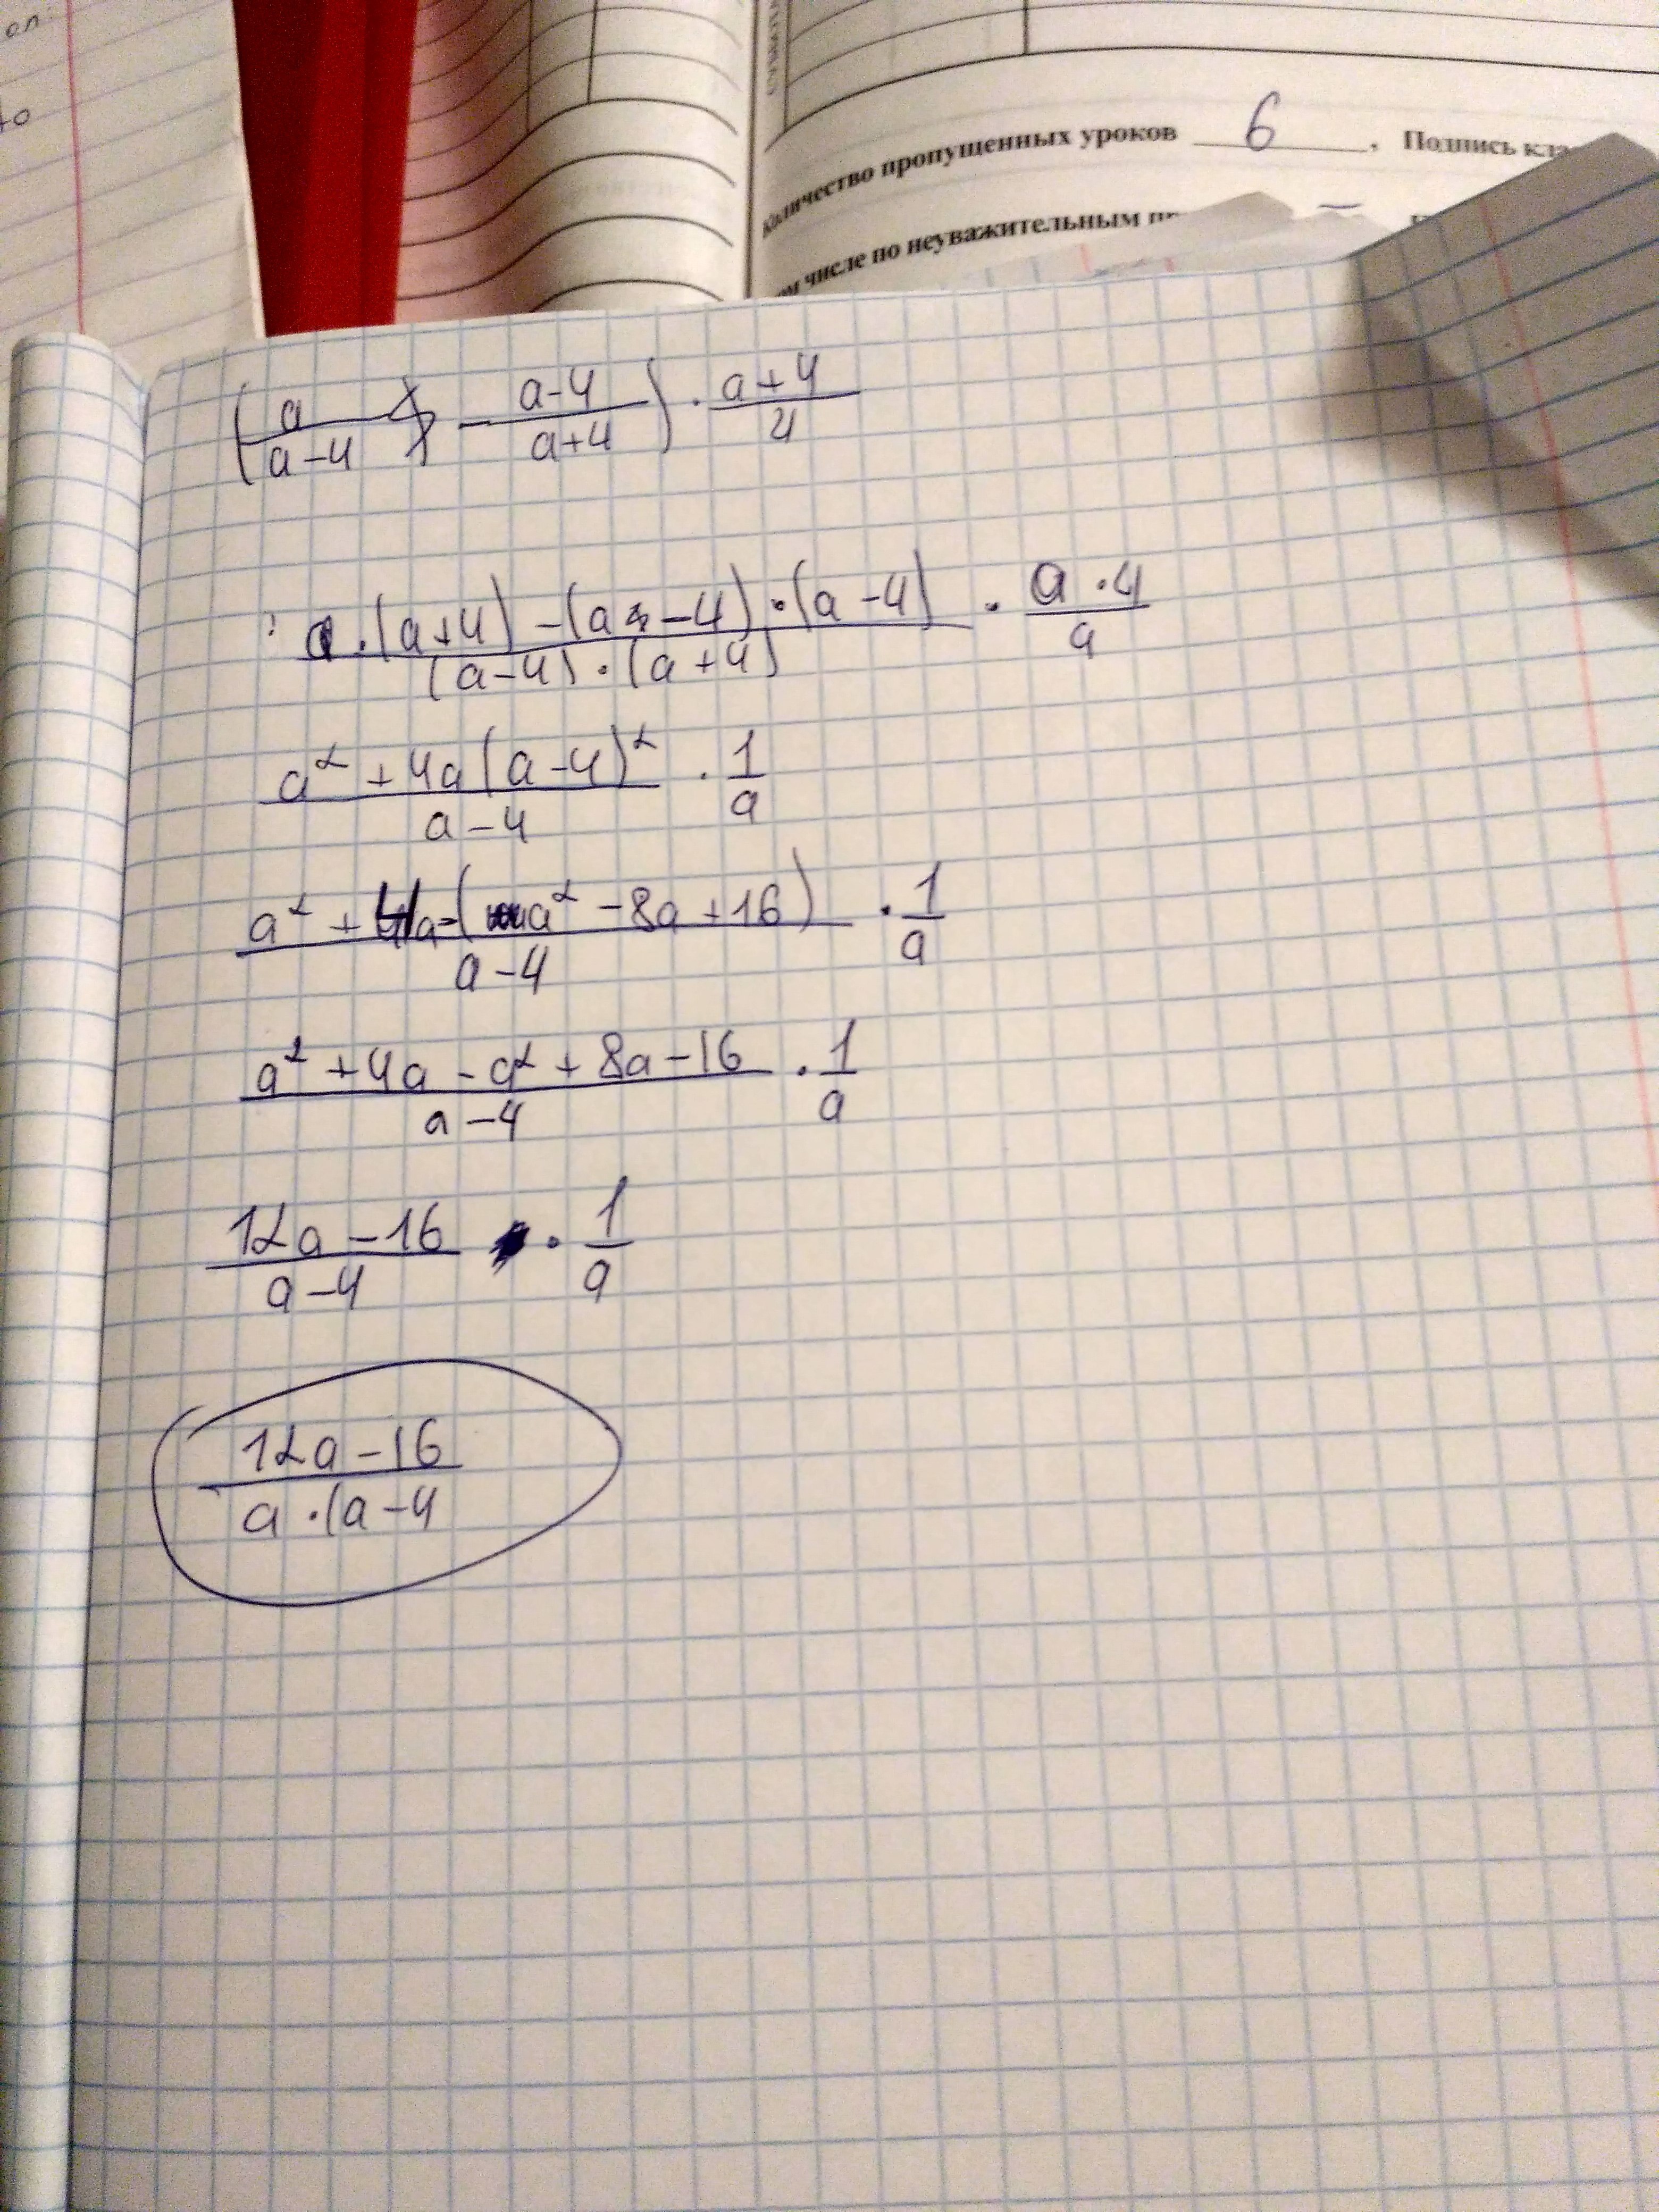 ол
то
Количество пропущенных уроков 6 , Подпись
числе по неуважительным
(a/(a-4) - (a-4)/(a+4)) · (a+4)/4
(a·(a+4)-(a-4)·(a-4))/((a-4)·(a+4)) · (a·4)/a
(a²+4a(a-4)²)/(a-4) · 1/a
(a²+4a-(a²-8a+16))/(a-4) · 1/a
(a²+4a-a²+8a-16)/(a-4) · 1/a
(12a-16)/(a-4) · 1/a
(12a-16)/(a·(a-4